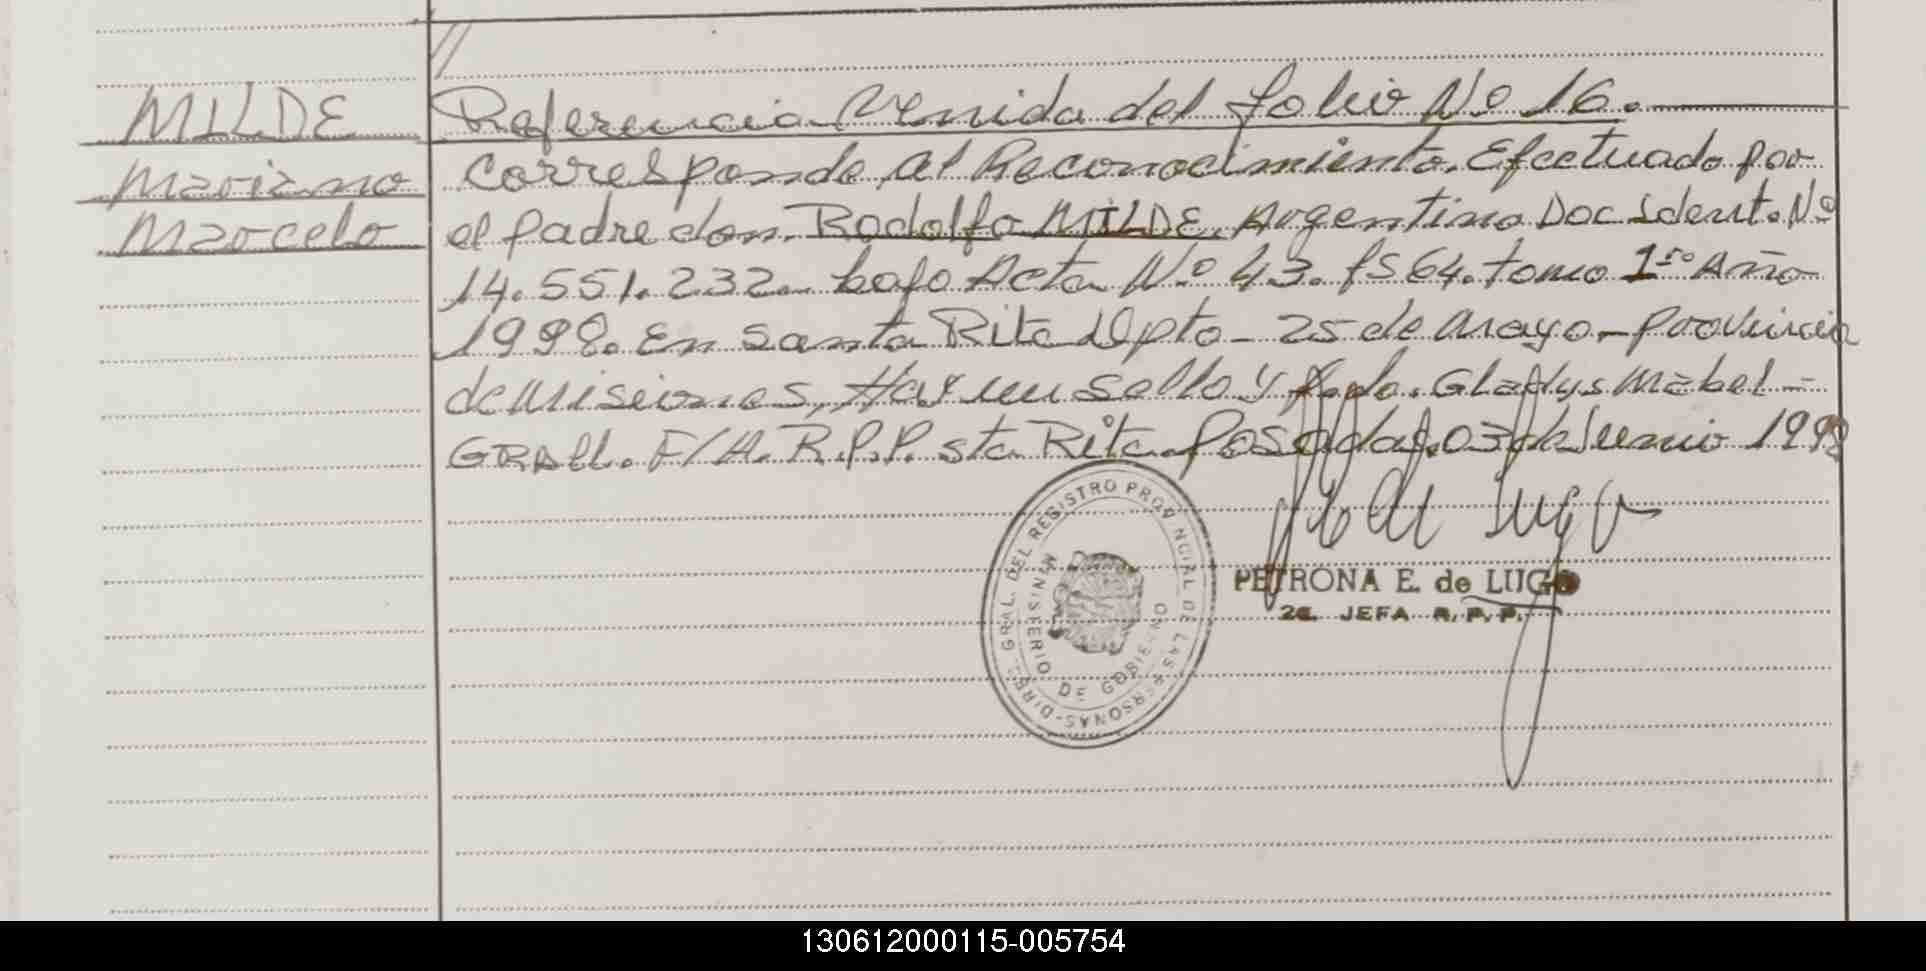 //
MILDE
Mariano
Marcelo
Referencia Venida del folio Nº 16.
Corresponde al Reconocimiento. Efectuado por
el padre don. Rodolfo MILDE. Argentino Doc Ident. Nº
14.551.232. bajo Acta Nº 43. fs 64. tomo 1ro Año
1998. En Santa Rita Dpto - 25 de Mayo - Provincia
de Misiones, Hay un sello y fdo. Gladys Mabel -
GRAll. F/A. R.P.P. sta Rita. Posadas, 03 de Junio 1998
DIRC. GRAL. DEL REGISTRO PROVINCIAL DE LAS PERSONAS-
MINISTERIO DE GOBIERNO
PETRONA E. de LUGO
2a. JEFA R.P.P.
130612000115-005754